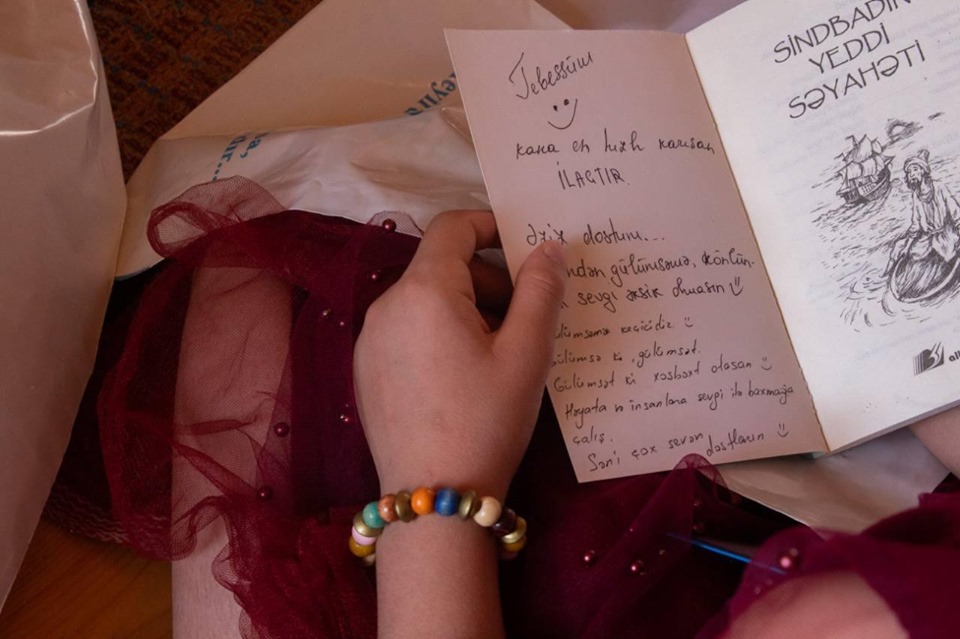 Tebessüm
kana en hızlı karışan
İLAÇTIR.
Əziz dostum...
gülüması, könlün-
sevgi əksik olmasın
keçicidir
ki, gülümsət.
Gülümsət ki xoşbəxt olasan
Həyata və insanlara sevgi ilə baxmağa
çalış.
Səni çox sevən dostların
SİNDBADIN
YEDDİ
SƏYAHƏTİ